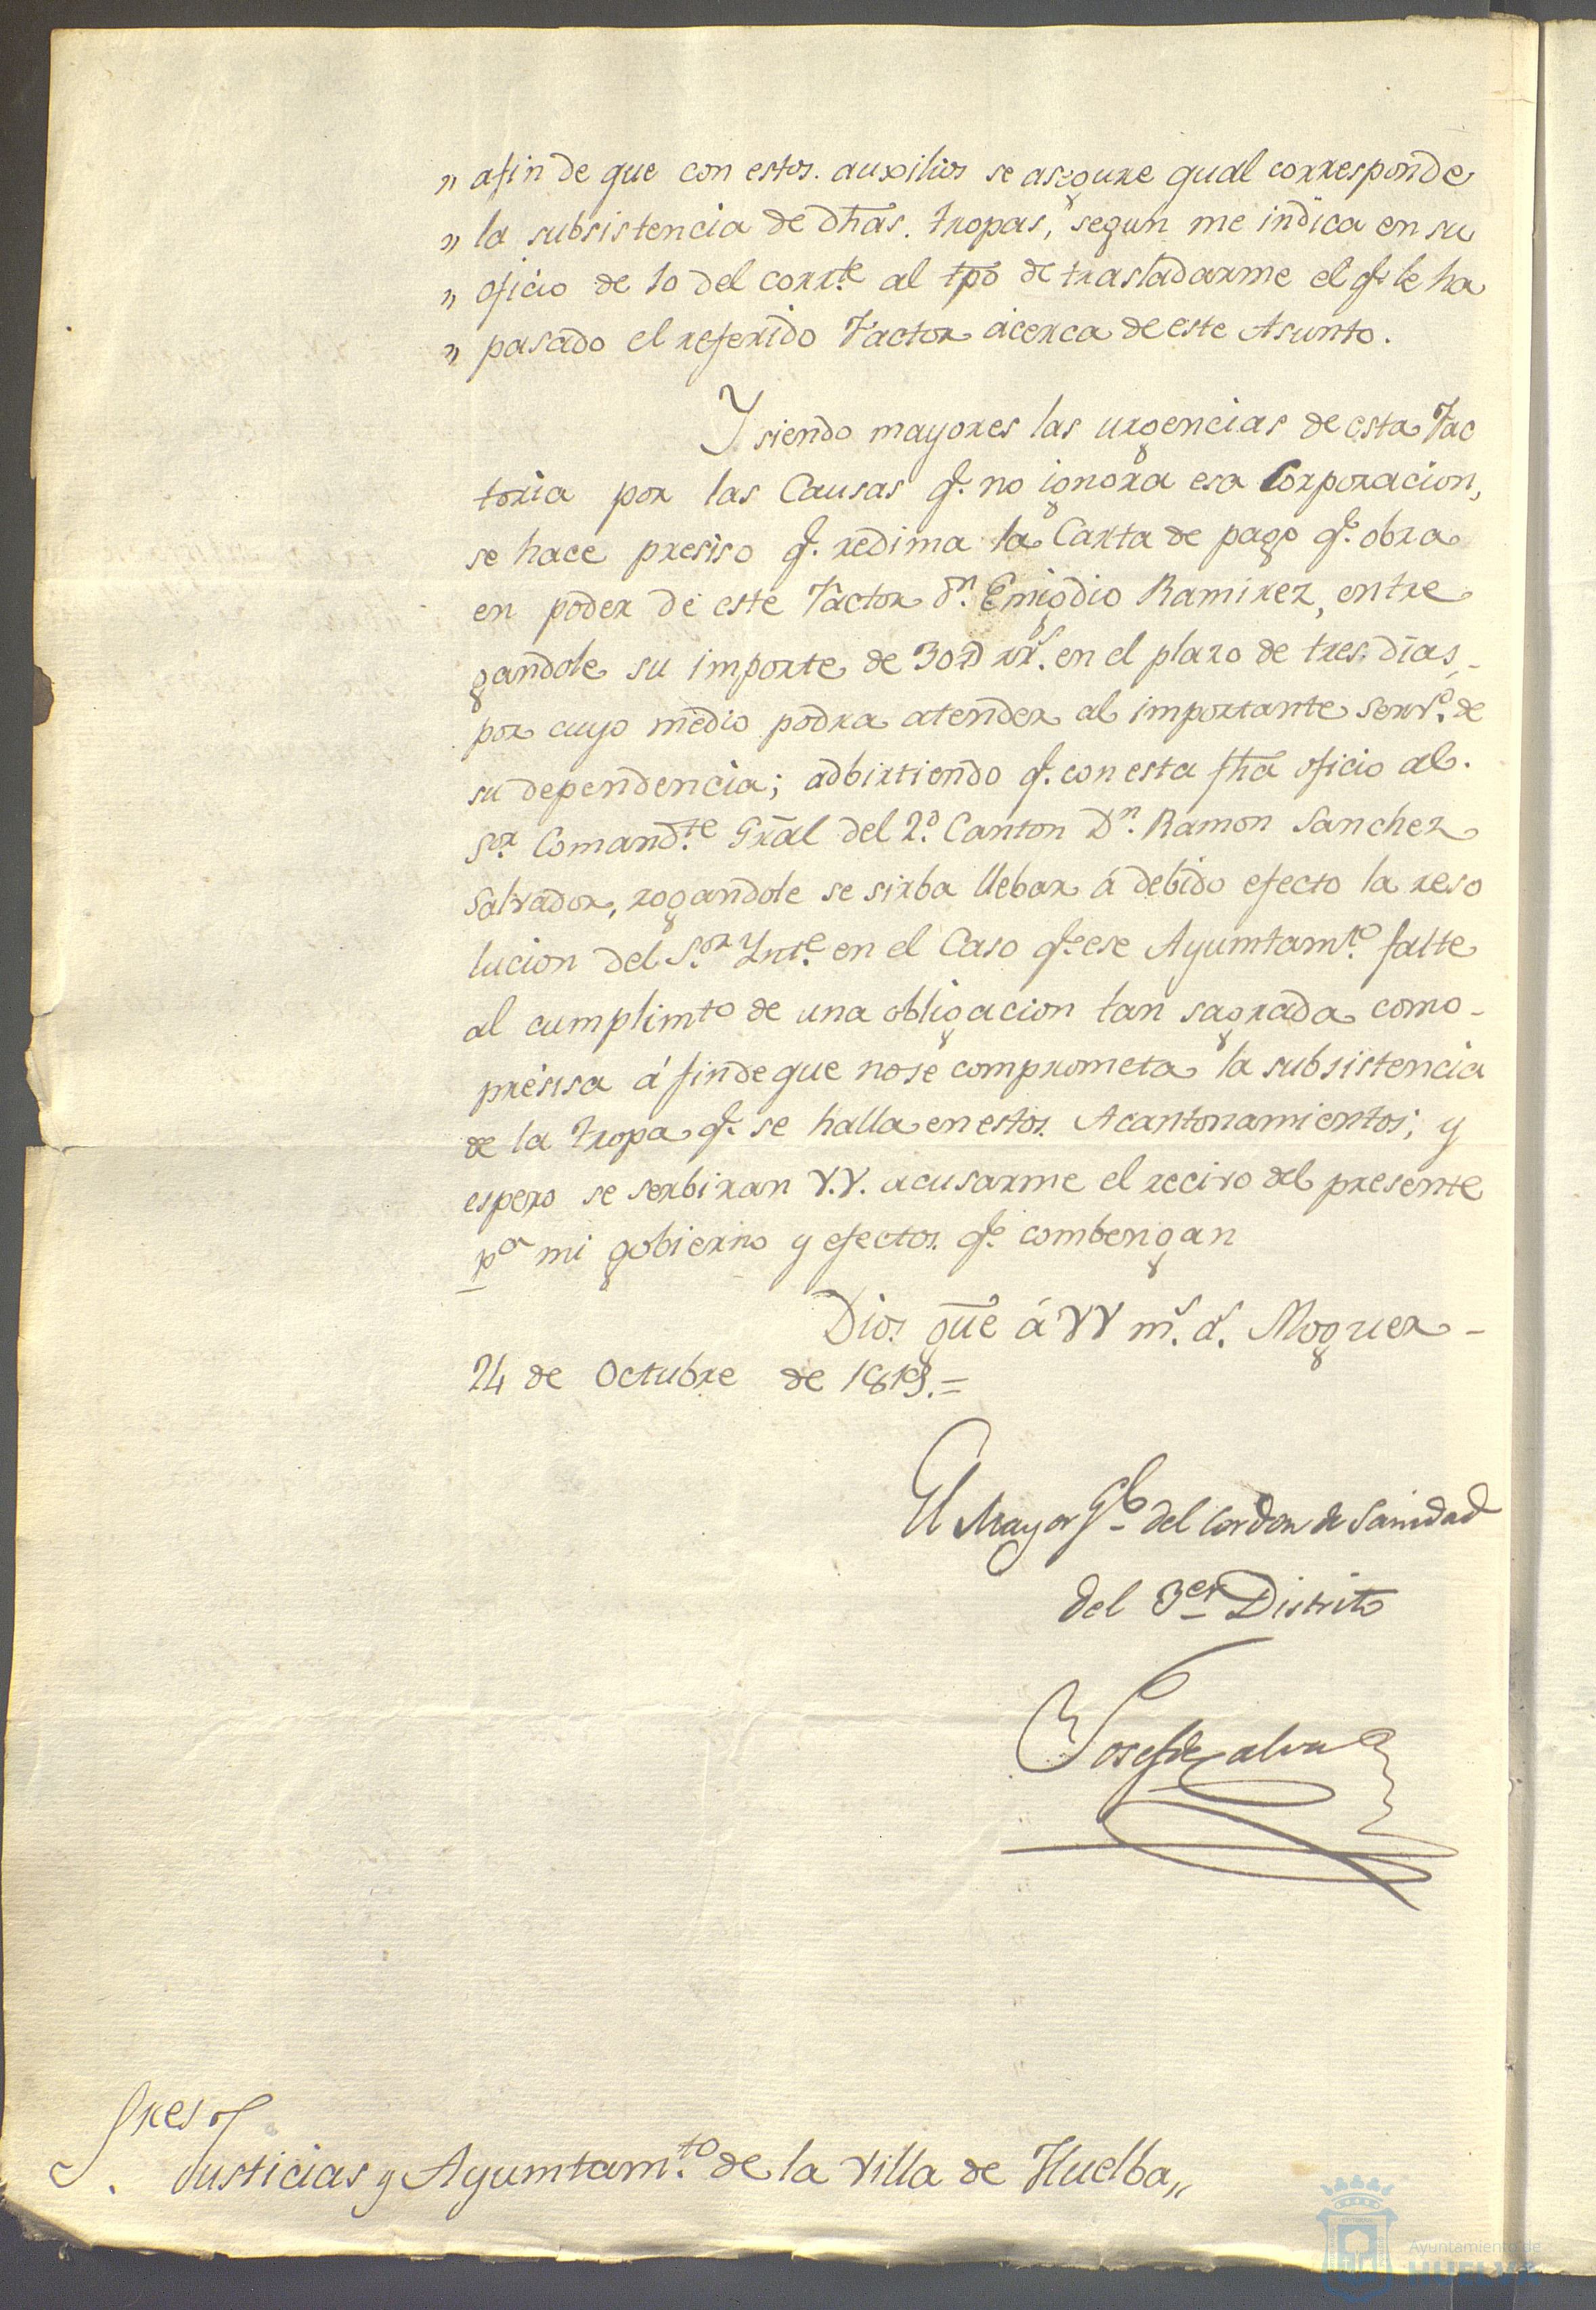 „ afin de que con estos. auxilios se asegure qual corresponde
„ la subsistencia de dhas. tropas, segun me indica en su
„ oficio de 10 del corrte. al tpo de trasladarme el qe. le ha
„ pasado el referido Factor acerca de este Asunto.
Y siendo mayores las urgencias de esta Fac
toria por las Causas q. no ignora esa Corporacion,
se hace presiso q. redima la Carta de pago q. obra
en poder de este Factor Dn. Emigdio Ramirez, entre
gandole su importe de 30D rrs. en el plazo de tres dias,
por cuyo medio podra atender al importante servo. de
su dependencia; adbirtiendo q. con esta fha oficio al.
Sor. Comandte. Gral del 2º. Canton Dn. Ramon Sanchez
Salvador, rogandole se sirba llebar á debido efecto la reso
lucion del Sor. Ynte. en el Caso qe. ese Ayumtamto. falte
al cumplimto de una obligacion tan sagrada como-
présisa á fin de que no se comprometa la subsistencia
de la tropa q. se halla en estos. Acantonamientos; y
espero se serbiran V.V. acusarme el recivo del presente
pa mi gobierno y efectos. qe. combengan
Dios. gue á VV ms. as. Moguer-
24 de Octubre de 1819.=
El Mayor Gl. del Cordon de Sanidad
del 3er Distrito
Josef de
Sres
Justicias y Ayumtamto. de la Villa de Huelba„
Ayuntamiento de
HUELVA